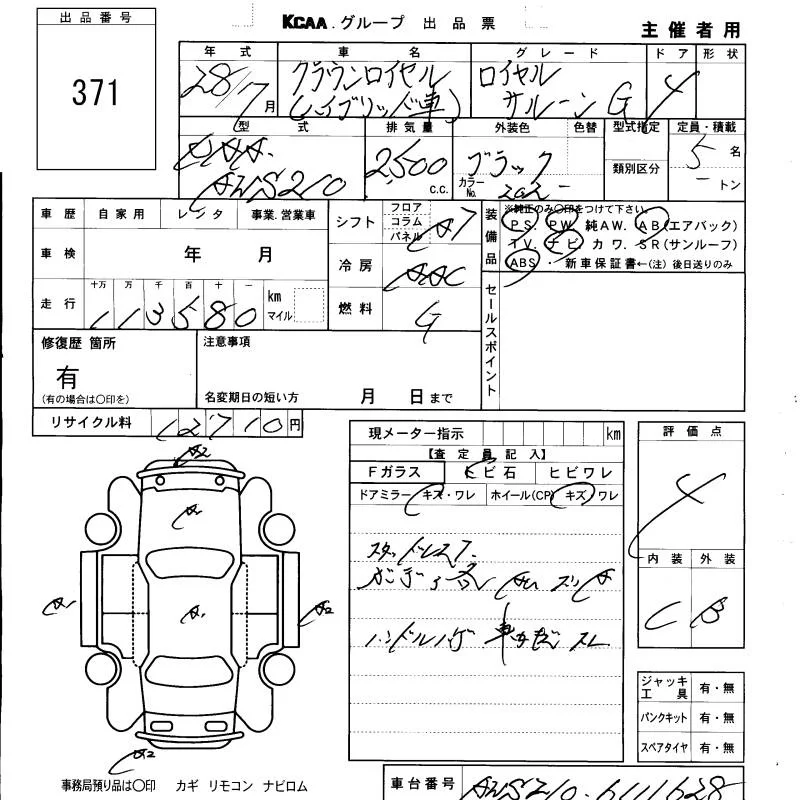 出品番号
371
KCAA.グループ 出品票
主催者用
年式 車名 グレード ドア 形状
28/7月 クラウンロイヤル ロイヤル 4
(ハイブリッド車) サルーンG
型式 排気量 外装色 色替 型式指定 定員・積載
DAA. 2,500 c.c. ブラック 類別区分 5名
AWS210 カラーNo. 202 - -トン
車歴 自家用 レンタ 事業.営業車
シフト フロア コラム パネル AT
装備品
※純正のみ○印をつけて下さい。
PS. PW. 純AW. AB(エアバック)
TV. ナビ カワ. SR(サンルーフ)
ABS ・ 新車保証書←(注)後日送りのみ
車検 年 月
冷房 AAC
走行 十万 万 千 百 十 一
113580 km マイル
燃料 G
セールスポイント
修復歴 箇所
有
(有の場合は○印を)
注意事項
名変期日の短い方 月 日まで
リサイクル料 12710円
現メーター指示 km
【査定員記入】
Fガラス ヒビ石 ヒビワレ
ドアミラー キズ・ワレ ホイール(CP) キズ ワレ
評価点
4
内装 外装
C B
スタッドレスT.
ハンドルハゲ
A2
A1
A1
A1
A2
A2
ジャッキ工具 有・無
パンクキット 有・無
スペアタイヤ 有・無
事務局預り品は○印 カギ リモコン ナビロム
車台番号 AWS210-6111628